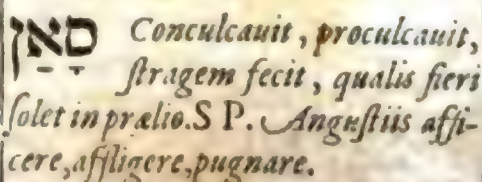 סָאַן Conculcauit, proculcauit,
ſtragem fecit, qualis fieri
ſolet in prælio. S P. Anguſtiis affi-
cere, affligere, pugnare.